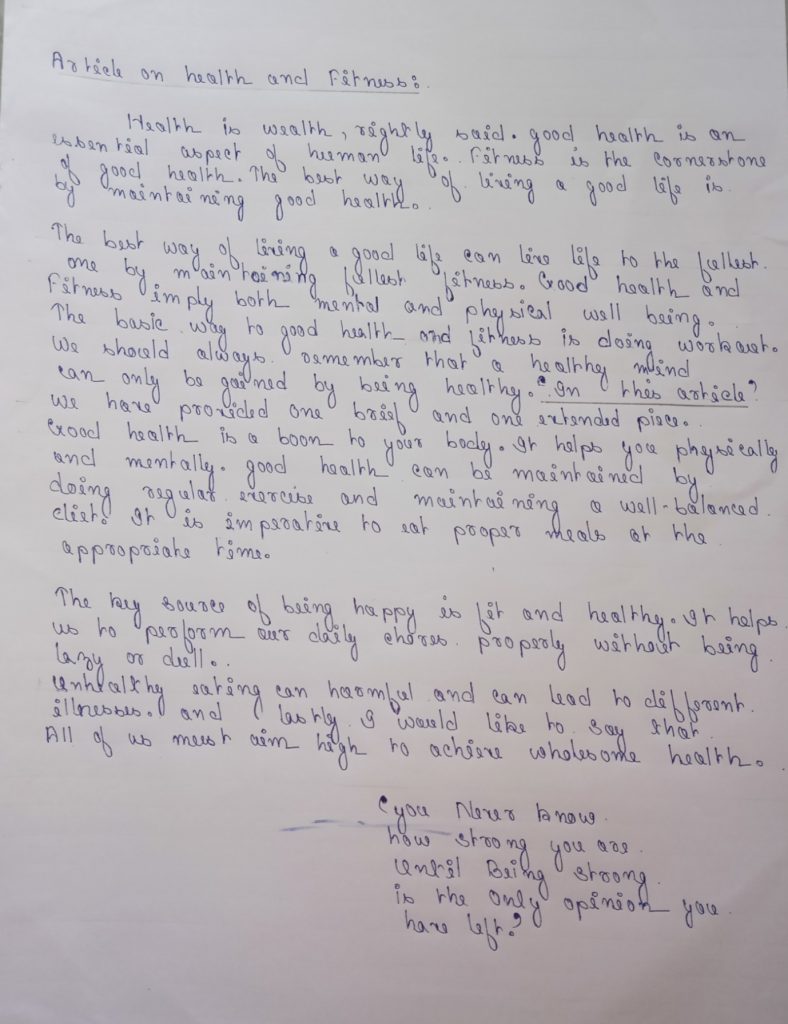 Article on health and Fitness:
Health is wealth, rightly said. good health is an
essential aspect of human life. Fitness is the cornerstone
of good health. The best way of living a good life is
by maintaining good health.
The best way of living a good life can live life to the fullest.
one by maintaining fullest fitness. Good health and
Fitness imply both mental and physical well being.
The basic way to good health and fitness is doing workout.
We should always remember that a healthy mind
can only be gained by being healthy. "In this article"
We have provided one brief and one extended piece.
Good health is a boon to your body. It helps you physically
and mentally. good health can be maintained by
doing regular exercise and maintaining a well-balanced
diet. It is imperative to eat proper meals at the
appropriate time.
The key source of being happy is fit and healthy. It helps
us to perform our daily chores properly without being
lazy or dull.
Unhealthy eating can harmful and can lead to different
illnesses. and lastly I would like to say that
All of us must aim high to achieve wholesome health.
"you Never know
how strong you are
until Being strong
is the only opinion you
have left"